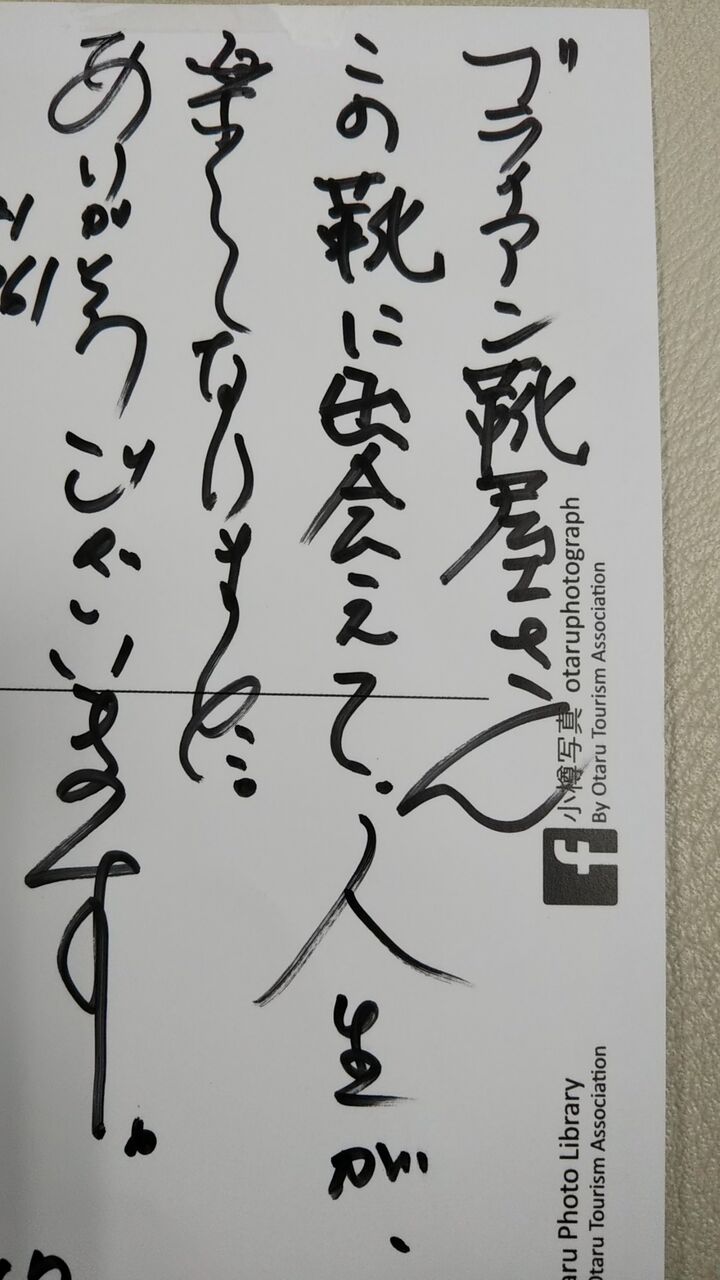 ブライアン靴屋さん
この靴に出会えて、人生が、
楽しくなりました。
ありがとうございます。
061
小樽写真 otaruphotograph
By Otaru Tourism Association
ru Photo Library
taru Tourism Association